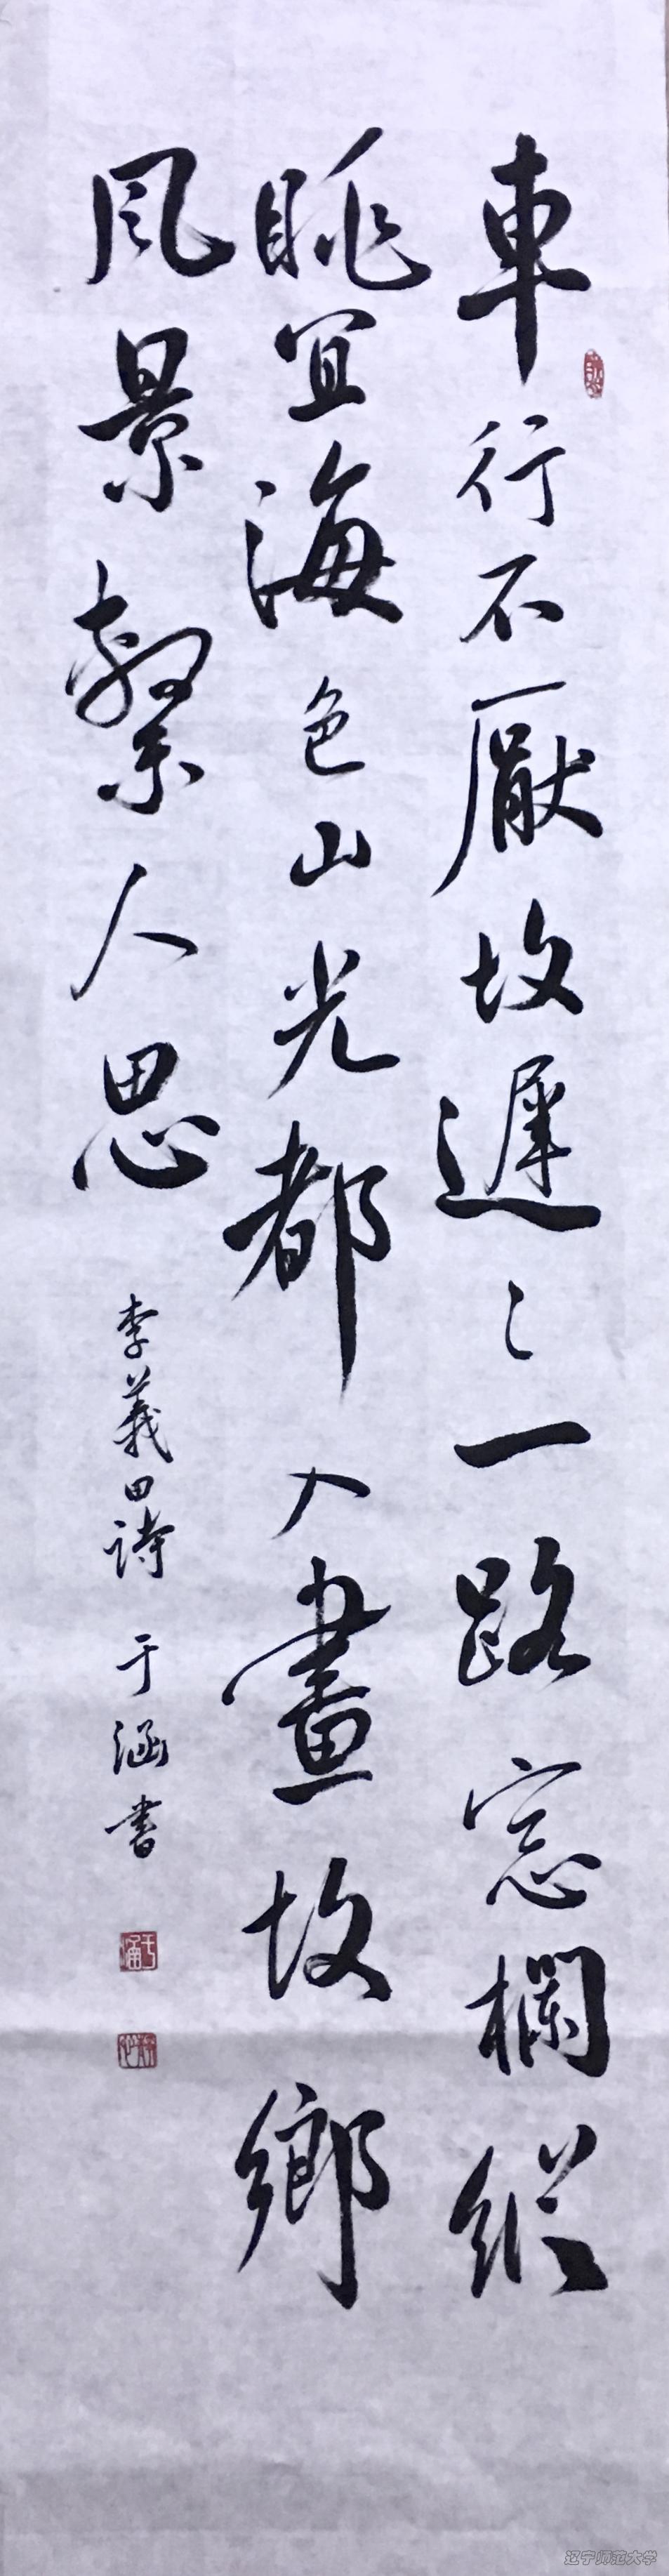 車行不厭故遲〻一路窓欄縱
眺宜海色山光都入畫故鄉
風景繫人思
李義田詩 于涵書
于涵
辽宁师范大学